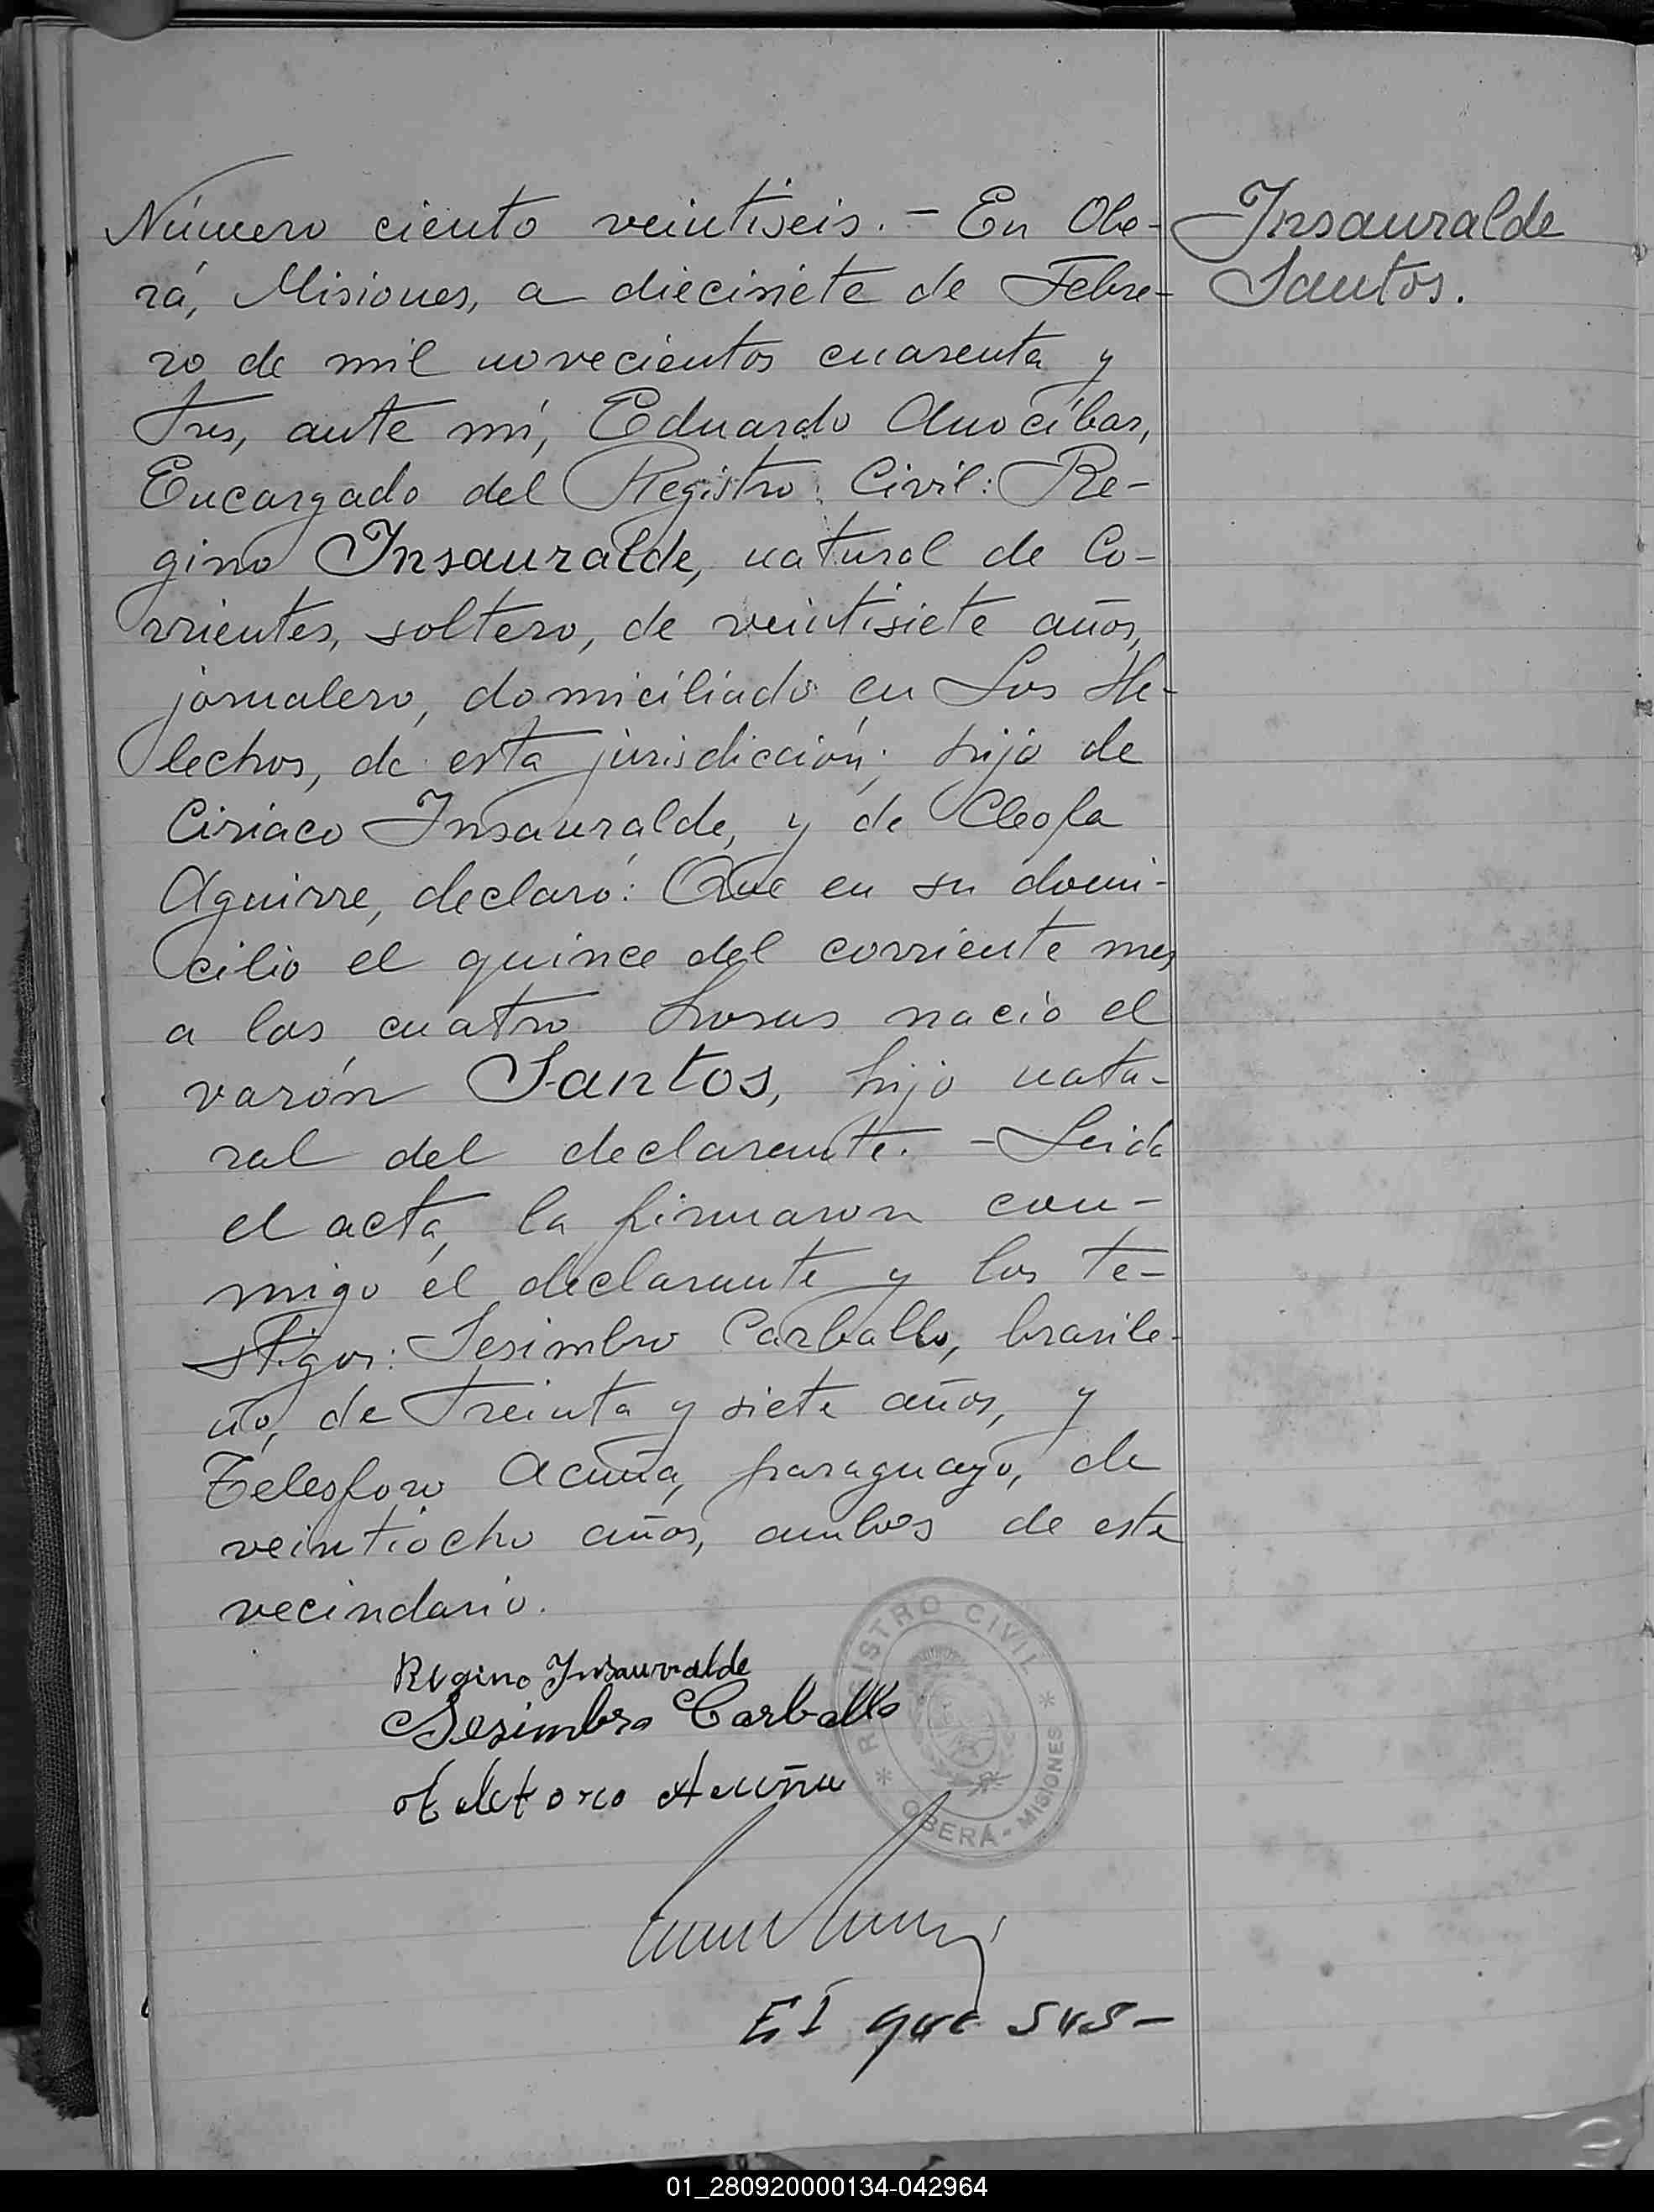 Número ciento veintiseis. - En Obe-
rá, Misiones, a diecisiete de Febre-
ro de mil novecientos cuarenta y
tres, ante mí, Eduardo Anocíbar,
Encargado del Registro Civil: Re-
gino Insauralde, natural de Co-
rrientes, soltero, de veintisiete años,
jornalero, domiciliado en Los He-
lechos, de esta jurisdicción; hijo de
Ciriaco Insauralde, y de Cleofa
Aguirre, declaró: Que en su domi-
cilio el quince del corriente mes
a las cuatro horas nació el
varón Santos, hijo natu-
ral del declarante. - Leida
el acta, la firmaron con-
migo el declarante y los te-
stigos: Sesimbro Carballo, brasile-
ño, de treinta y siete años, y
Telesforo Acuña, paraguayo, de
veintiocho años, ambos de este
vecindario.
Insauralde
Santos.
Regino Insaurralde
Sesimbro Carballo
Acuña
REGISTRO CIVIL
* OBERÁ - MISIONES *
El que sus-
01_280920000134-042964